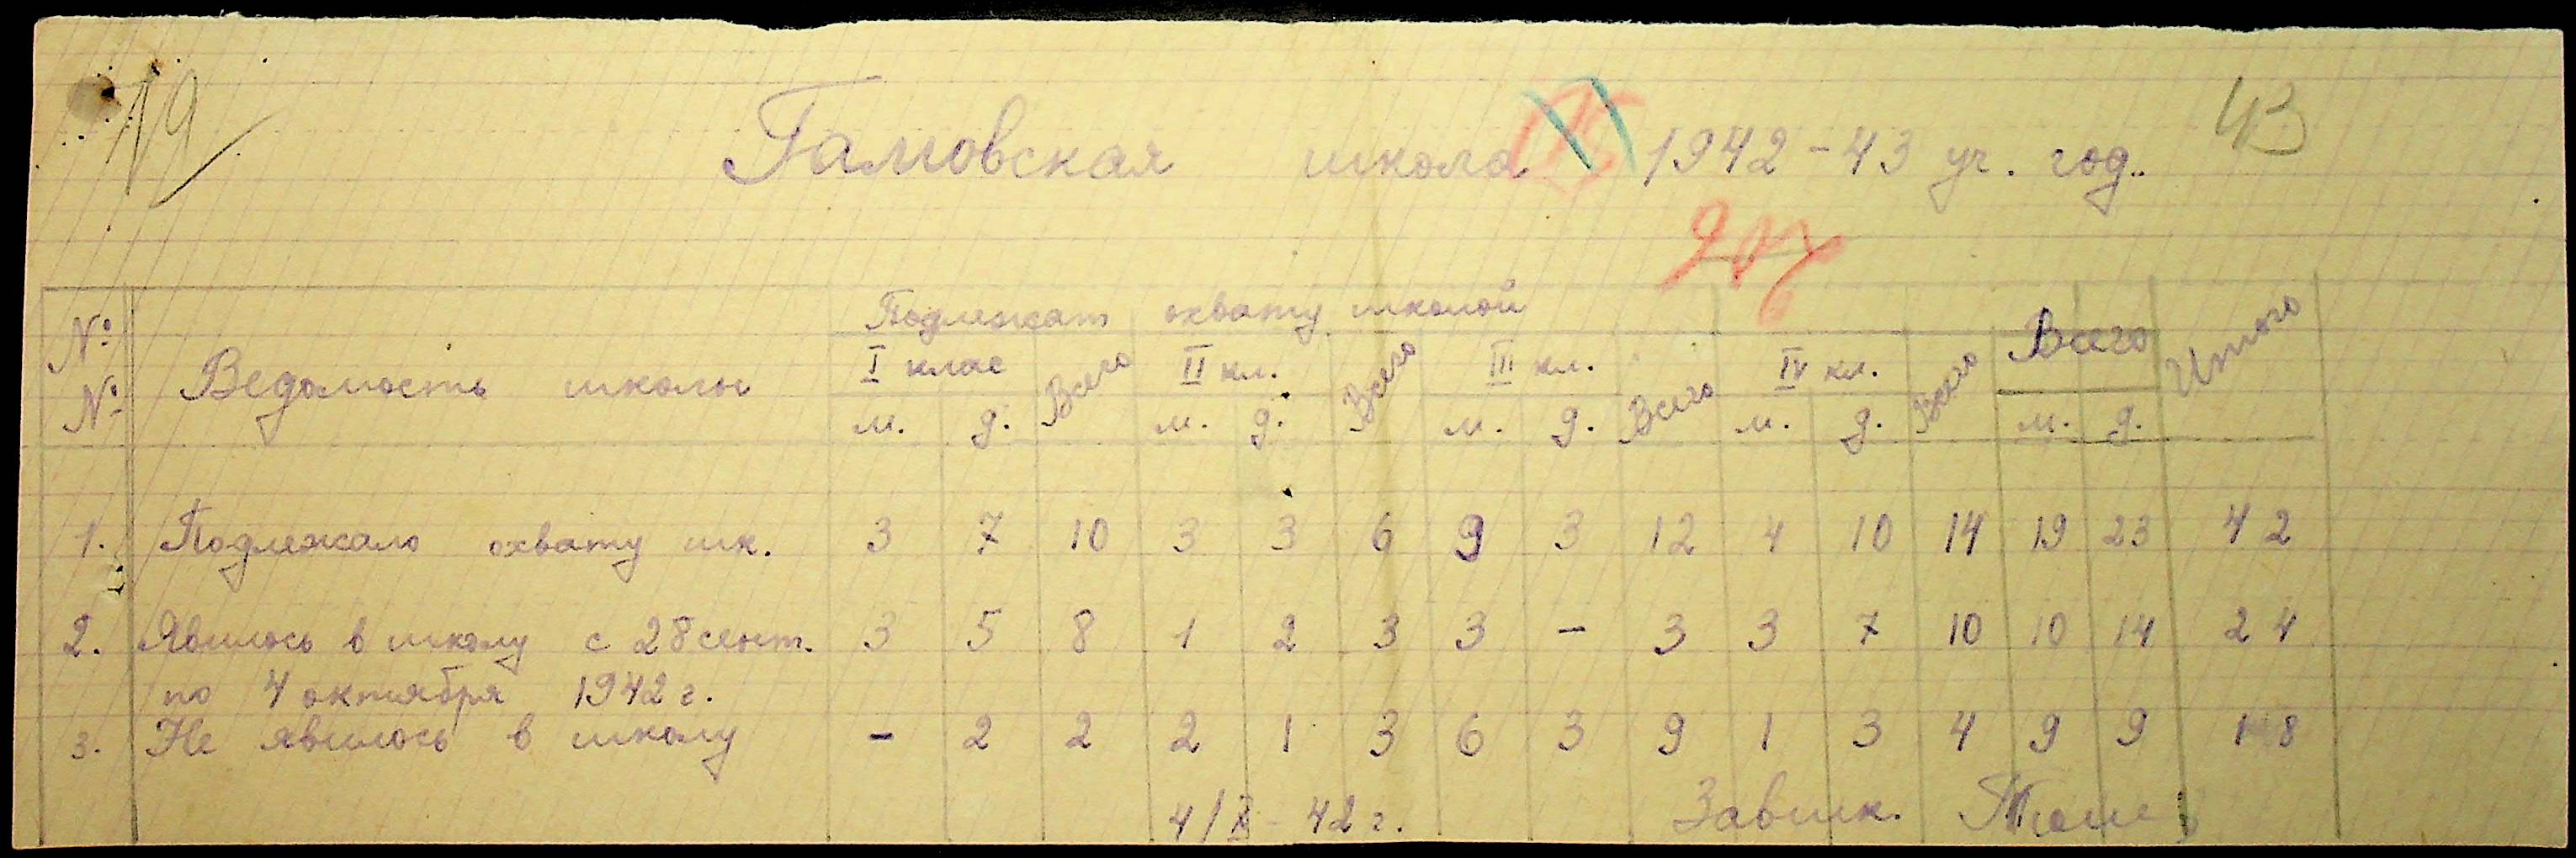 19
43
Гамовская школа 1942-43 уч. год.
№ №
Ведомость школы
Подлежат охвату школой
I клас Всего II кл. Всего III кл. Всего IV кл. Всего Всего Итого
м. д. м. д. м. д. м. д. м. д.
1. Подлежало охвату шк. 3 7 10 3 3 6 9 3 12 4 10 14 19 23 42
2. Явилось в школу с 28 сент. 3 5 8 1 2 3 3 - 3 3 7 10 10 14 24
по 4 октября 1942 г.
3. Не явилось в школу - 2 2 2 1 3 6 3 9 1 3 4 9 9 18
4/X - 42 г. Завшк.